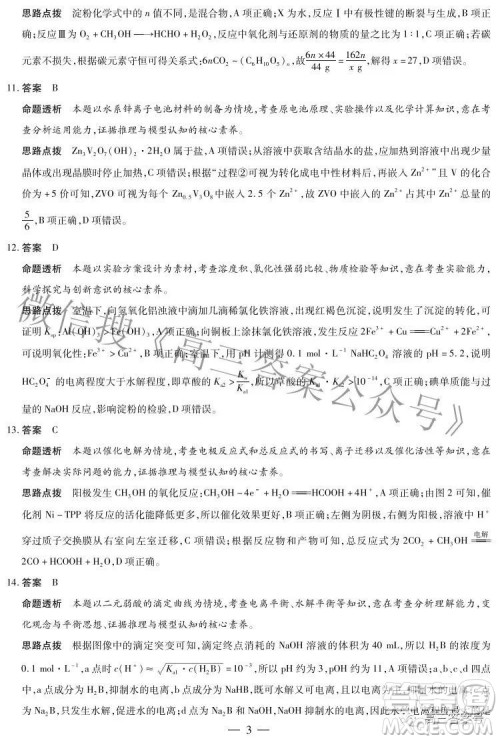 思路点拨 淀粉化学式中的 n 值不同,是混合物,A 项正确;X 为水,反应Ⅰ中有极性键的断裂与生成,B 项正
确;反应Ⅲ为 O₂ + CH₃OH ⟶ HCHO + H₂O₂,反应中氧化剂与还原剂的物质的量之比为 1∶1,C 项正确;若碳
元素不损失,根据碳元素守恒可得关系式:6nCO₂ ~ (C₆H₁₀O₅)n,故 6n×44/44 g = 162n/x g,解得 x = 27,D 项错误。
11. 答案 B
命题透析 本题以水系锌离子电池材料的制备为情境,考查原电池原理、实验操作以及化学计算知识,意在考
查分析运用能力,证据推理与模型认知的核心素养。
思路点拨 Zn₃V₂O₇(OH)₂·2H₂O 属于盐,A 项错误;从溶液中获取含结晶水的盐,应加热到溶液中出现少量
晶体或晶膜时停止加热,C 项错误;根据“过程②可视为转化成电中性材料后,再嵌入 Zn²⁺”且 V 的化合
价为 +5 价可知,ZVO 可视为每个 Zn₀.₅V₃O₈ 中嵌入 2.5 个 Zn²⁺,故 ZVO 中嵌入的 Zn²⁺ 占其中 Zn²⁺ 总量的
5/6,B 项正确,D 项错误。
12. 答案 D
命题透析 本题以实验方案设计为素材,考查溶度积、氧化性强弱及物质检验等知识,意在考查实验分析能力,
科学探究与创新意识的核心素养。
思路点拨 室温下,向氢氧化铝浊液中滴加几滴稀氯化铁溶液,出现红褐色沉淀,说明发生了沉淀的转化,可
证明 Al(OH)₃,A 项正确;向铜板上涂抹氯化铁溶液,发生反应 2Fe³⁺ + Cu = Cu²⁺ + 2Fe²⁺,
可说明氧化性:Fe³⁺ > Cu²⁺,B 项正确;室温下,用 pH 计测得 0.1 mol·L⁻¹ NaHC₂O₄ 溶液的 pH = 5.2,说明
HC₂O₄⁻ 的电离程度大于水解程度,即草酸的 Kₐ₂ > Kw/Kₐ₁,所以草酸的 Kₐ₁ × Kₐ₂ > 10⁻¹⁴,C 项正确;
的 NaOH 反应,影响淀粉的检验,D 项错误。
13. 答案 C
命题透析 本题以催化电解为情境,考查电极反应式和总反应式的书写、离子迁移以及催化活性等知识,意在
考查解决实际问题的能力,证据推理与模型认知的核心素养。
思路点拨 阳极发生 CH₃OH 的氧化反应:CH₃OH − 4e⁻ + H₂O = HCOOH + 4H⁺,A 项正确;由图 2 可知,催
化剂 Ni-TPP 将反应的活化能降低更多,所以催化效果更好,B 项正确;左侧为阴极,右侧为阳极,H⁺
穿过质子交换膜从右室向左室迁移,C 项错误;根据阴极和阳极产物可知,总反应式为 2CO₂ + CH₃OH =电解=
2CO + HCOOH + H₂O,D 项正确。
14. 答案 B
命题透析 本题以二元弱酸的滴定曲线为情境,考查电离平衡、水解平衡等知识,意在考查分析理解能力,变
化观念与平衡思想、证据推理与模型认知的核心素养。
思路点拨 根据图像中的滴定突变可知,滴定终点消耗的 NaOH 溶液的体积为 40 mL,所以 NaOH 的浓度为
0.1 mol·L⁻¹,a 点时 c(H⁺) ≈ √(Kₐ₁·c(H₂B)) = 10⁻³,所以 pH 约为 3,pOH 约为 11,A 项错误;a、b、c、d 四点
中,a 点成分为 H₂B,抑制水的电离;b 点成分为
点成分为只发生水解,促进水的电离;d 点成分为 NaOH,抑制水的电离,
— 3 —
微信搜《高三答案公众号》